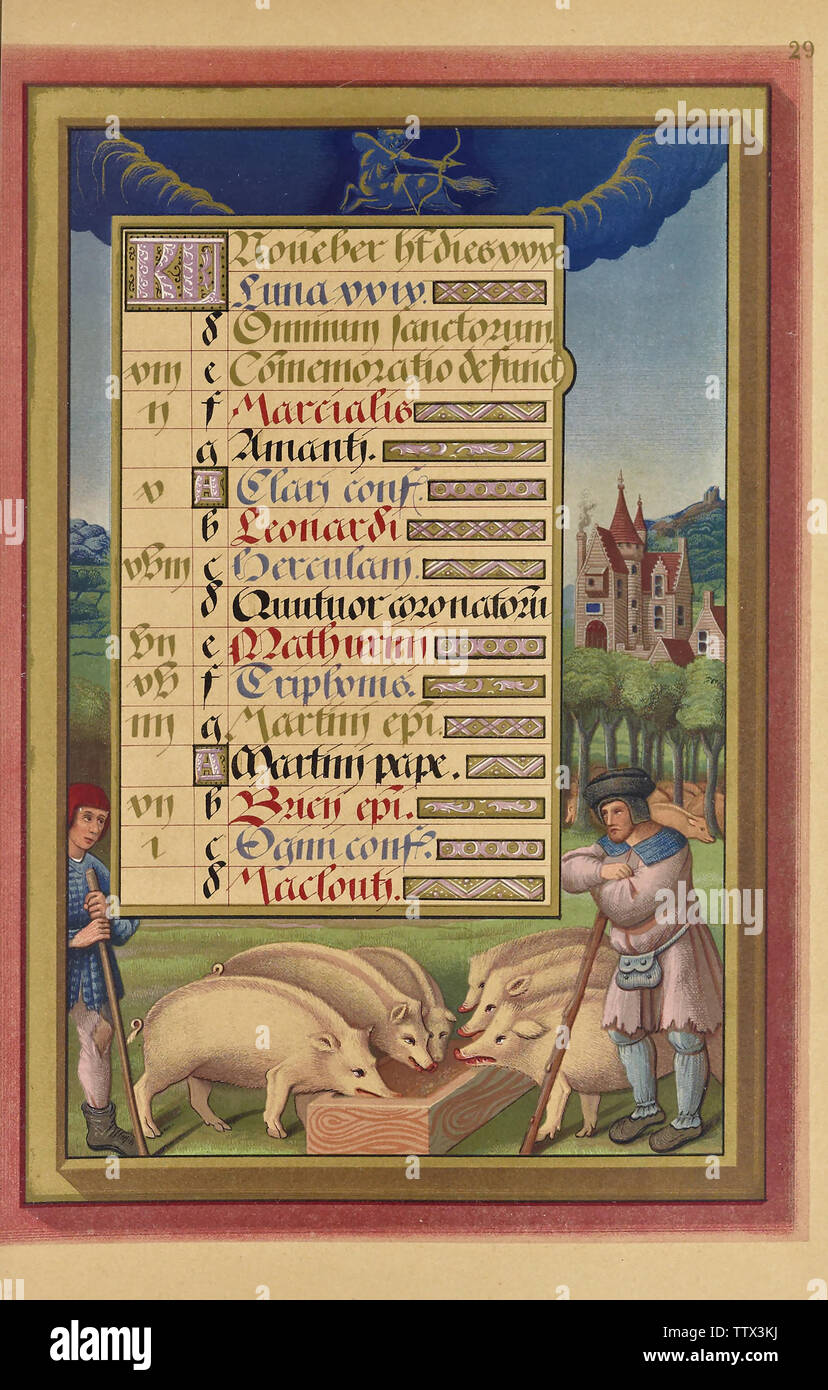 29
KL Nouēber ht dies xxx.
Luna xxix.
d Omnium sanctorum.
viii e Cōmemoratio defunct
ii f Marcialis
g Amantii.
v A Clari conf.
b Leonardi
xviii c Herculani.
d Quutuor coronatorū
vii e Mathurini
xv f Triphonis.
iiii g Martini epī.
A Martini pape.
vii b Bricii epī.
i c conf.
d Maclouti.
alamy
Image ID: TTX3KJ
www.alamy.com